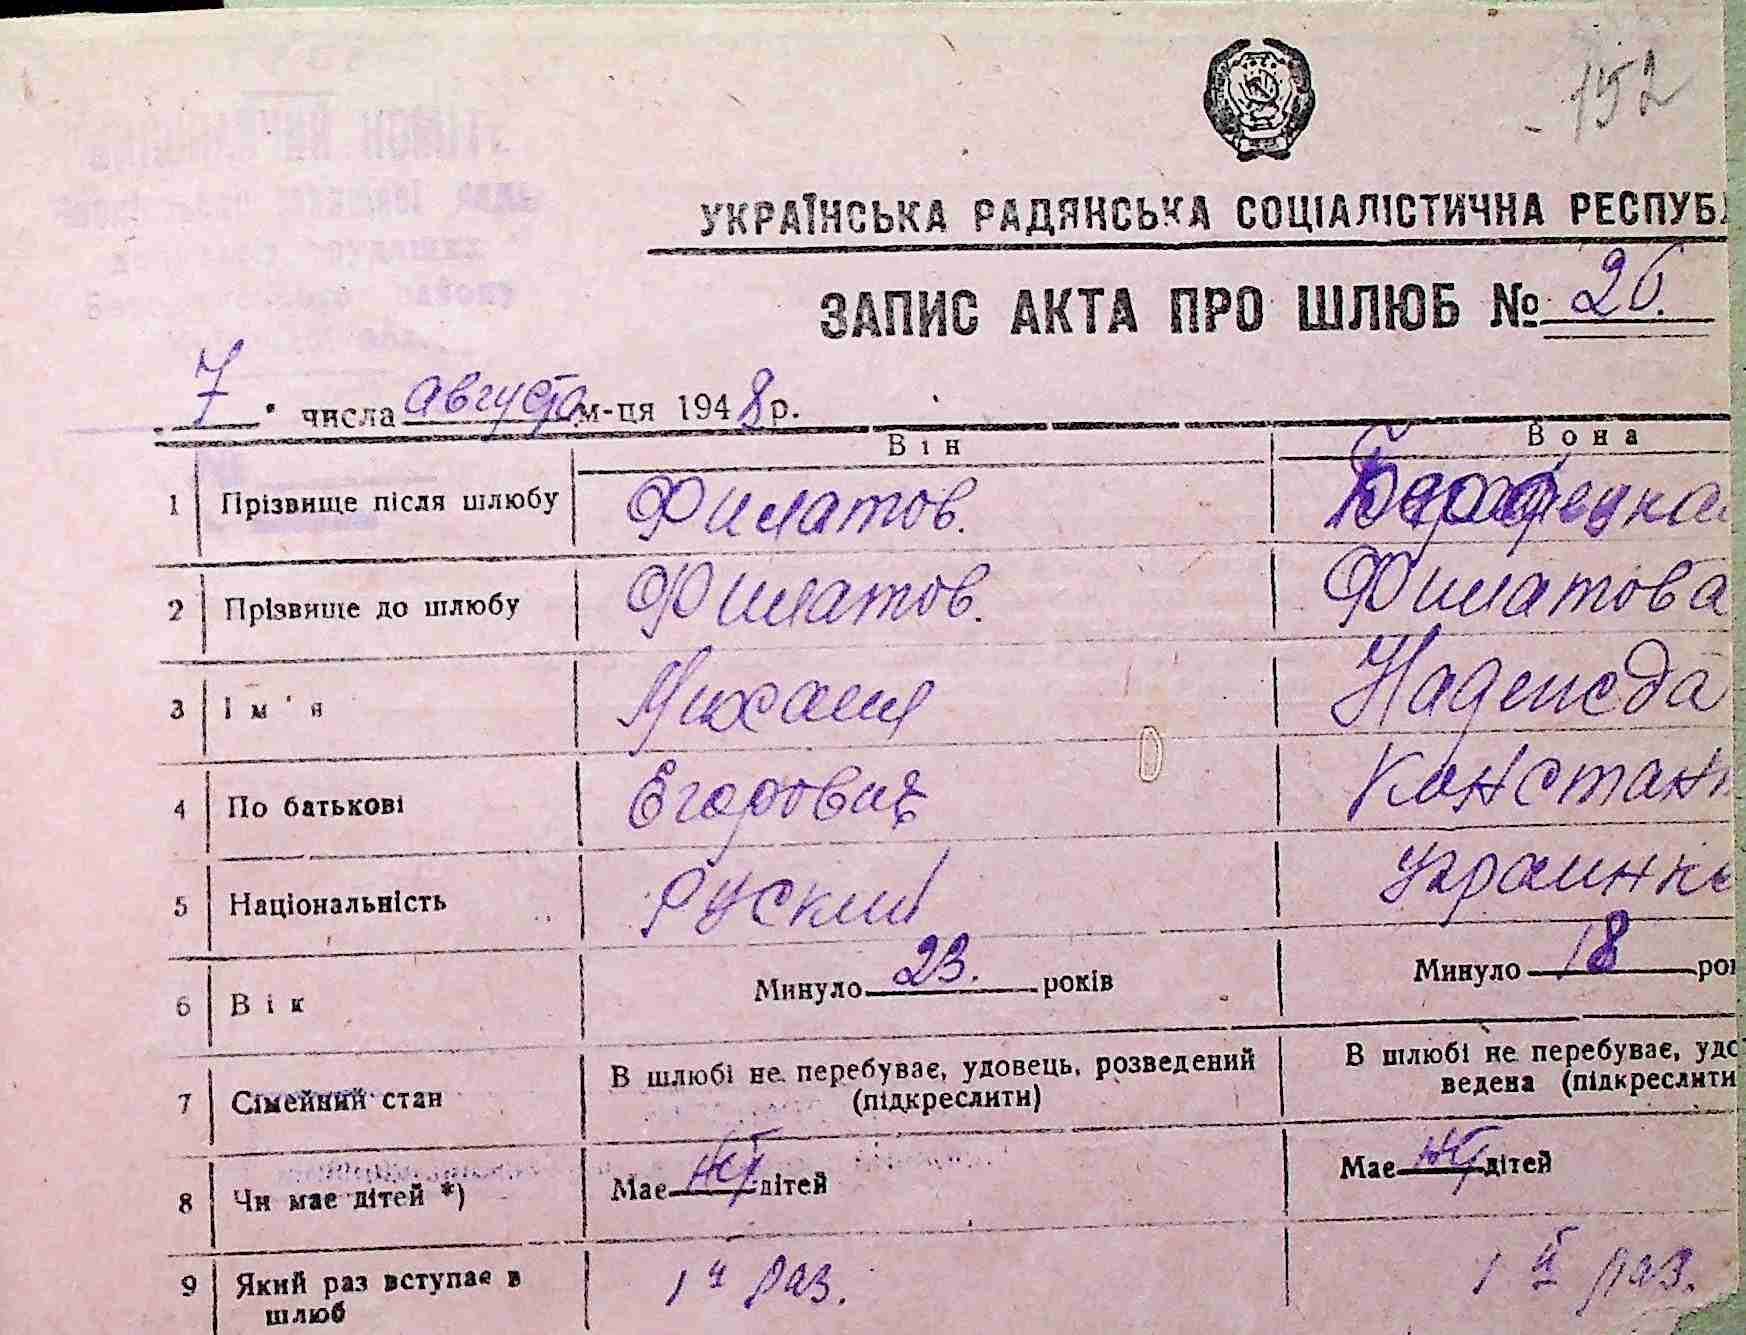 152
УКРАЇНСЬКА РАДЯНСЬКА СОЦІАЛІСТИЧНА РЕСПУБ
ЗАПИС АКТА ПРО ШЛЮБ № 26.
7 числа августа м-ця 1948 р.
Він Вона
1 Прізвище після шлюбу Филатов.
2 Прізвище до шлюбу Филатов. Филатова
3 Ім'я Михаил Надежда
4 По батькові Егорович Констан
5 Національність Руский Украинк
6 Вік Минуло 23. років Минуло 18 ро
7 Сімейний стан В шлюбі не перебуває, удовець, розведений (підкреслити) В шлюбі не перебуває, удо
ведена (підкреслити
8 Чи має дітей *) Має нет дітей Має нет дітей
9 Який раз вступає в шлюб 1й раз. 1й раз.